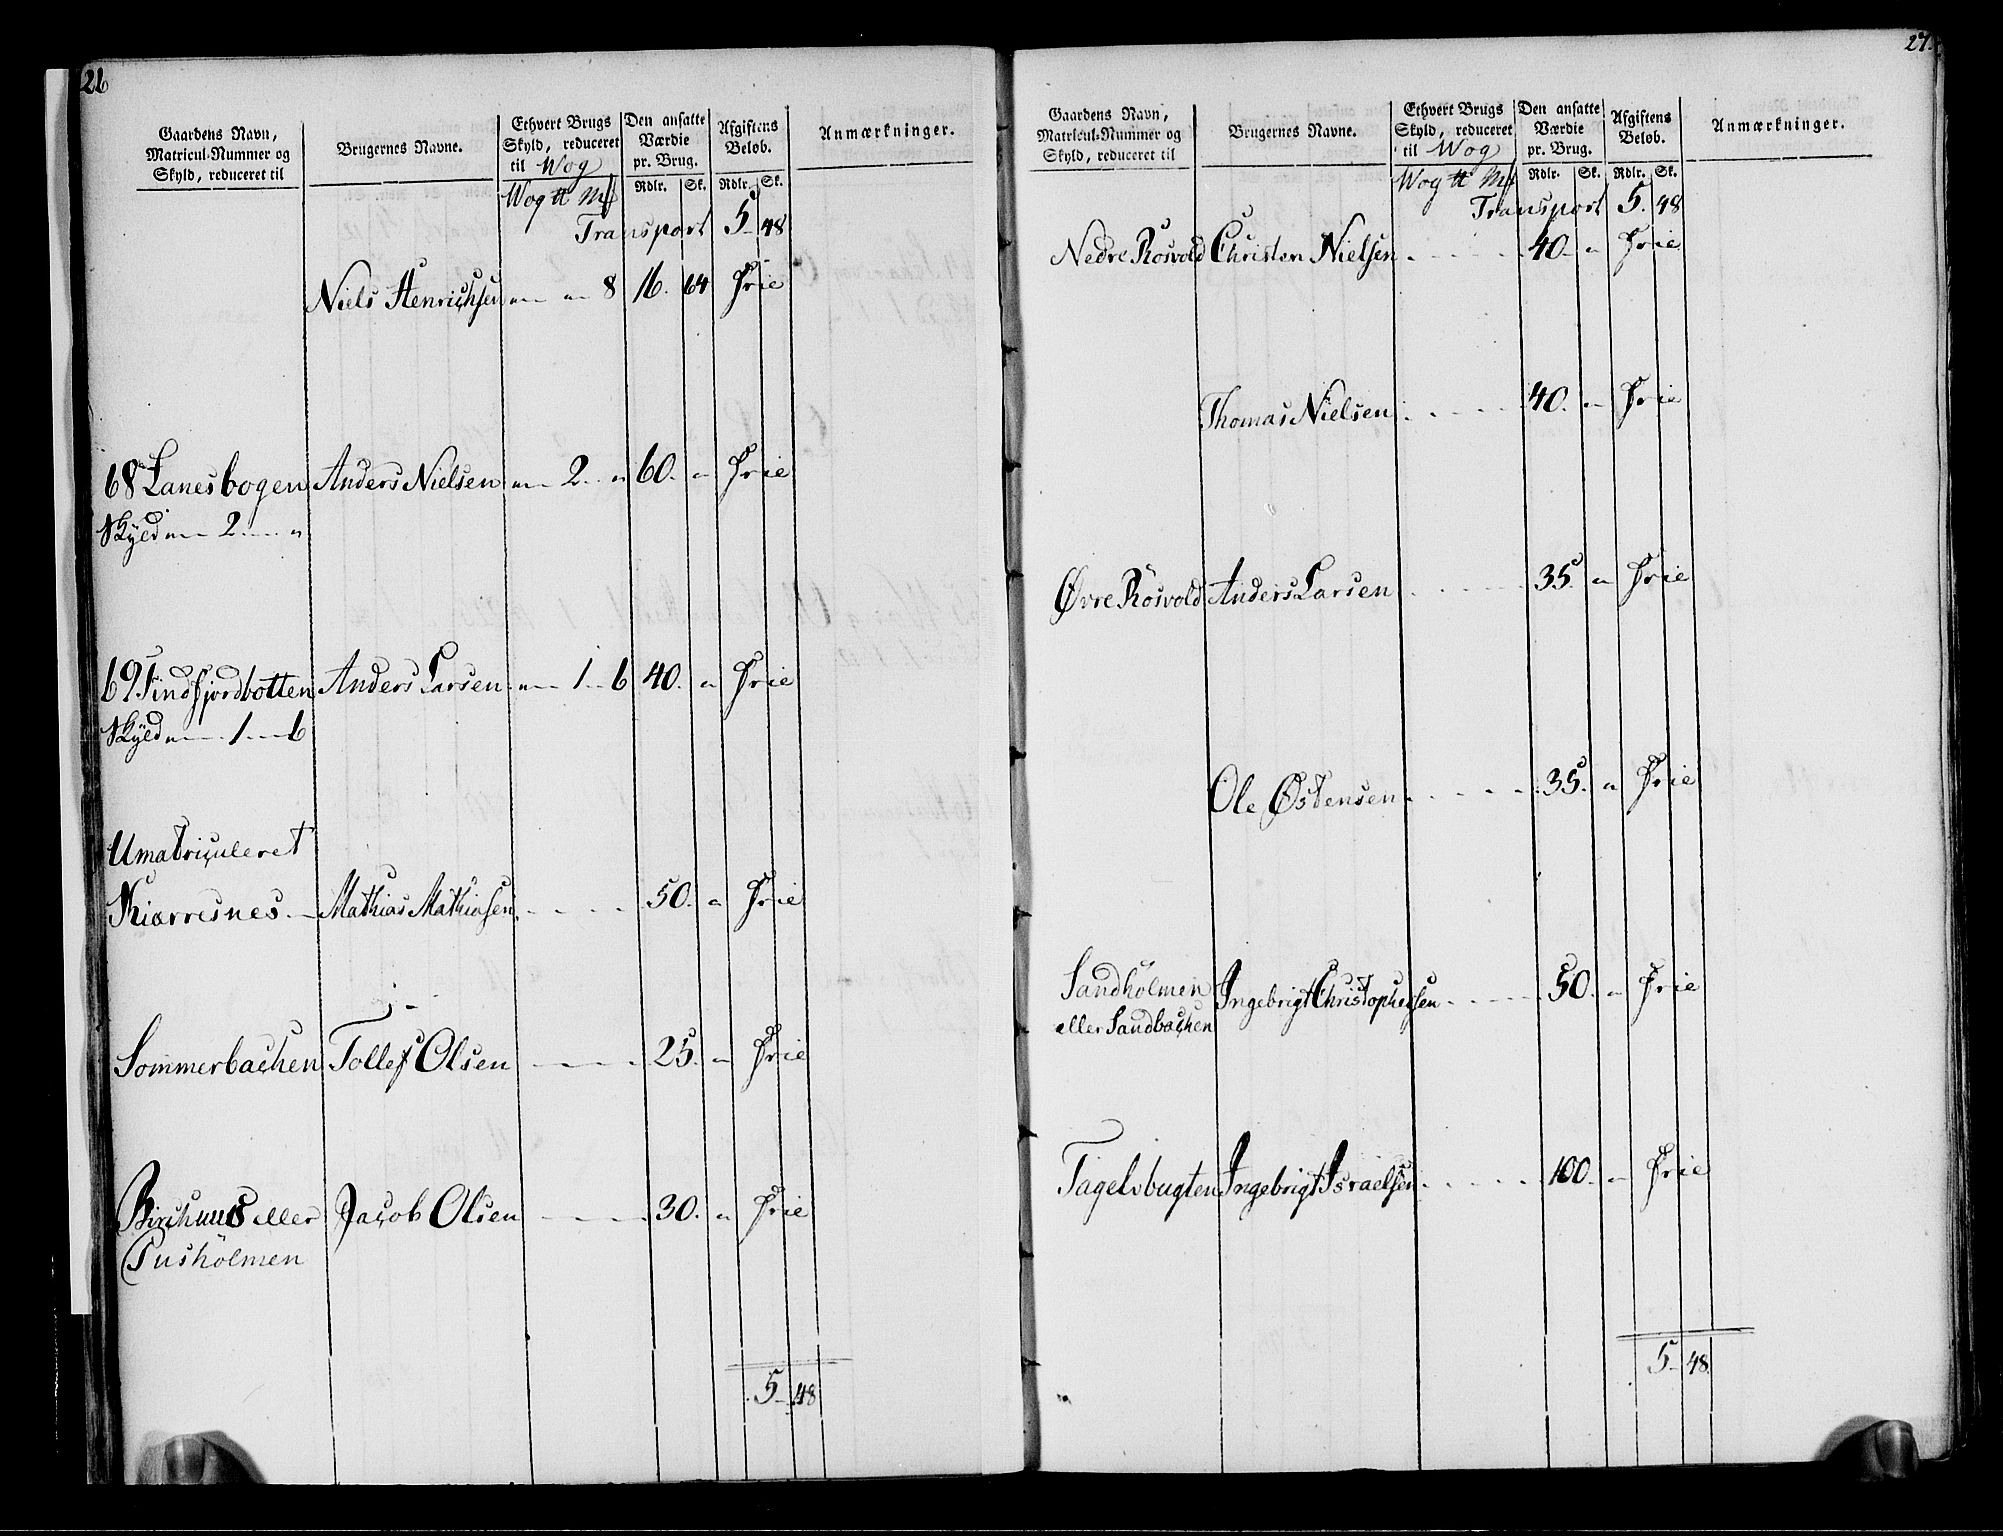 26
Gaardens Navn, Matricul-Nummer og Skyld, reduceret til
Brugernes Navne.
Ethvert Brugs Skyld, reduceret til Wog
Den ansatte Værdie pr. Brug.
Afgiftens Beløb.
Anmærkninger.
Wog ℔ Mk
Rdlr. Sk. Rdlr. Sk.
Transport 5 48
Niels Henrichsen „ „ 8 16. 64 Frie
68 Lanesbogen Anders Nielsen „ 2 „ 60. „ Frie
Skyld „ 2 „
69 Tindfjordbotten Anders Larsen „ 1 6 40. „ Frie
Skyld „ 1 6
Umatriculeret
Kiærresnes Mathias Mathiasen 50. „ Frie
Sommerbachen Tollef Olsen 25. „ Frie
Birchnus eller Jacob Olsen 30. „ Frie
Pusholmen
5 48
27.
Gaardens Navn, Matricul-Nummer og Skyld, reduceret til
Brugernes Navne.
Ethvert Brugs Skyld, reduceret til Wog
Den ansatte Værdie pr. Brug.
Afgiftens Beløb.
Anmærkninger.
Wog ℔ Mk
Rdlr. Sk. Rdlr. Sk.
Transport 5. 48
Nedre Rosvold Christen Nielsen 40. „ Frie
Thomas Nielsen 40. „ Frie
Øvre Rösvold Anders Larsen 35 „ Frie
Ole Østensen 35. „ Frie
Sandholmen Ingebrigt Christophersen 50. „ Frie
eller Sandbachen
Tagelsbugten Ingebrigt Israelsen 100. „ Frie
5 48